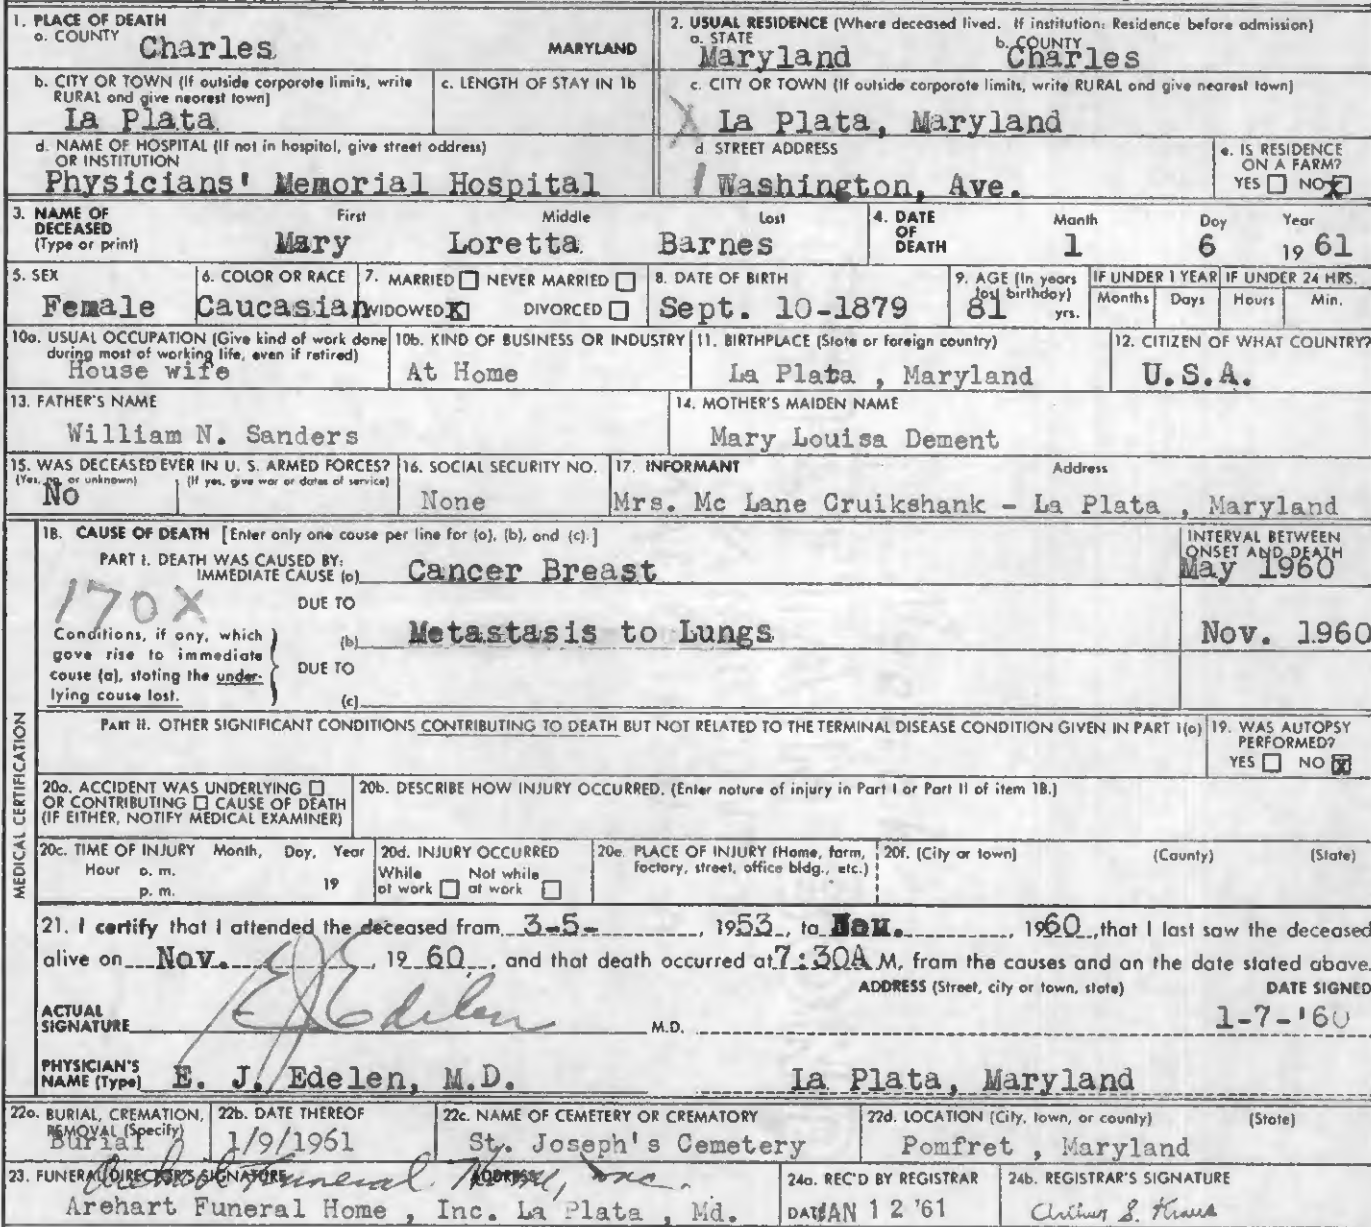 1. PLACE OF DEATH
a. COUNTY
Charles
MARYLAND
2. USUAL RESIDENCE (Where deceased lived. If institution: Residence before admission)
a. STATE
Maryland
b. COUNTY
Charles
b. CITY OR TOWN (If outside corporate limits, write RURAL and give nearest town)
La Plata
c. LENGTH OF STAY IN 1b
c. CITY OR TOWN (If outside corporate limits, write RURAL and give nearest town)
X La Plata, Maryland
d. NAME OF HOSPITAL (If not in hospital, give street address)
OR INSTITUTION
Physicians' Memorial Hospital
d. STREET ADDRESS
/ Washington, Ave.
e. IS RESIDENCE
ON A FARM?
YES ☐ NO ☒
3. NAME OF
DECEASED
(Type or print)
First Middle Last
Mary Loretta Barnes
4. DATE
OF
DEATH
Month Day Year
1 6 1961
5. SEX
Female
6. COLOR OR RACE
Caucasian
7. MARRIED ☐ NEVER MARRIED ☐
WIDOWED ☒ DIVORCED ☐
8. DATE OF BIRTH
Sept. 10-1879
9. AGE (In years
last birthday)
81 yrs.
IF UNDER 1 YEAR
Months Days
IF UNDER 24 HRS.
Hours Min.
10a. USUAL OCCUPATION (Give kind of work done
during most of working life, even if retired)
House wife
10b. KIND OF BUSINESS OR INDUSTRY
At Home
11. BIRTHPLACE (State or foreign country)
La Plata , Maryland
12. CITIZEN OF WHAT COUNTRY?
U.S.A.
13. FATHER'S NAME
William N. Sanders
14. MOTHER'S MAIDEN NAME
Mary Louisa Dement
15. WAS DECEASED EVER IN U. S. ARMED FORCES?
(Yes, no, or unknown) (If yes, give war or dates of service)
No
16. SOCIAL SECURITY NO.
None
17. INFORMANT Address
Mrs. Mc Lane Cruikshank - La Plata , Maryland
MEDICAL CERTIFICATION
18. CAUSE OF DEATH [Enter only one cause per line for (a), (b), and (c).]
INTERVAL BETWEEN
ONSET AND DEATH
PART I. DEATH WAS CAUSED BY:
IMMEDIATE CAUSE (a) Cancer Breast
May 1960
170X
DUE TO
Conditions, if any, which
gave rise to immediate
cause (a), stating the under-
lying cause last.
(b) Metastasis to Lungs
Nov. 1960
DUE TO
(c)
PART II. OTHER SIGNIFICANT CONDITIONS CONTRIBUTING TO DEATH BUT NOT RELATED TO THE TERMINAL DISEASE CONDITION GIVEN IN PART I(a)
19. WAS AUTOPSY
PERFORMED?
YES ☐ NO ☒
20a. ACCIDENT WAS UNDERLYING ☐
OR CONTRIBUTING ☐ CAUSE OF DEATH
(IF EITHER, NOTIFY MEDICAL EXAMINER)
20b. DESCRIBE HOW INJURY OCCURRED. (Enter nature of injury in Part I or Part II of item 18.)
20c. TIME OF INJURY Month, Day, Year
Hour a. m.
p. m. 19
20d. INJURY OCCURRED
While Not while
at work ☐ at work ☐
20e. PLACE OF INJURY (Home, farm,
factory, street, office bldg., etc.)
20f. (City or town) (County) (State)
21. I certify that I attended the deceased from 3-5- 1953, to Nov. 1960, that I last saw the deceased
alive on Nov. 1960, and that death occurred at 7:30A M, from the causes and on the date stated above.
ADDRESS (Street, city or town, state) DATE SIGNED
ACTUAL
SIGNATURE E J Edelen M.D. 1-7-'60
PHYSICIAN'S
NAME (Type) E. J. Edelen, M.D. La Plata, Maryland
22a. BURIAL, CREMATION,
REMOVAL (Specify)
Burial
22b. DATE THEREOF
1/9/1961
22c. NAME OF CEMETERY OR CREMATORY
St. Joseph's Cemetery
22d. LOCATION (City, town, or county) (State)
Pomfret , Maryland
23. FUNERAL DIRECTOR'S SIGNATURE ADDRESS
Arehart Funeral Home, Inc.
Arehart Funeral Home , Inc. La Plata , Md.
24a. REC'D BY REGISTRAR
DATE JAN 12 '61
24b. REGISTRAR'S SIGNATURE
Arthur S. Kraus